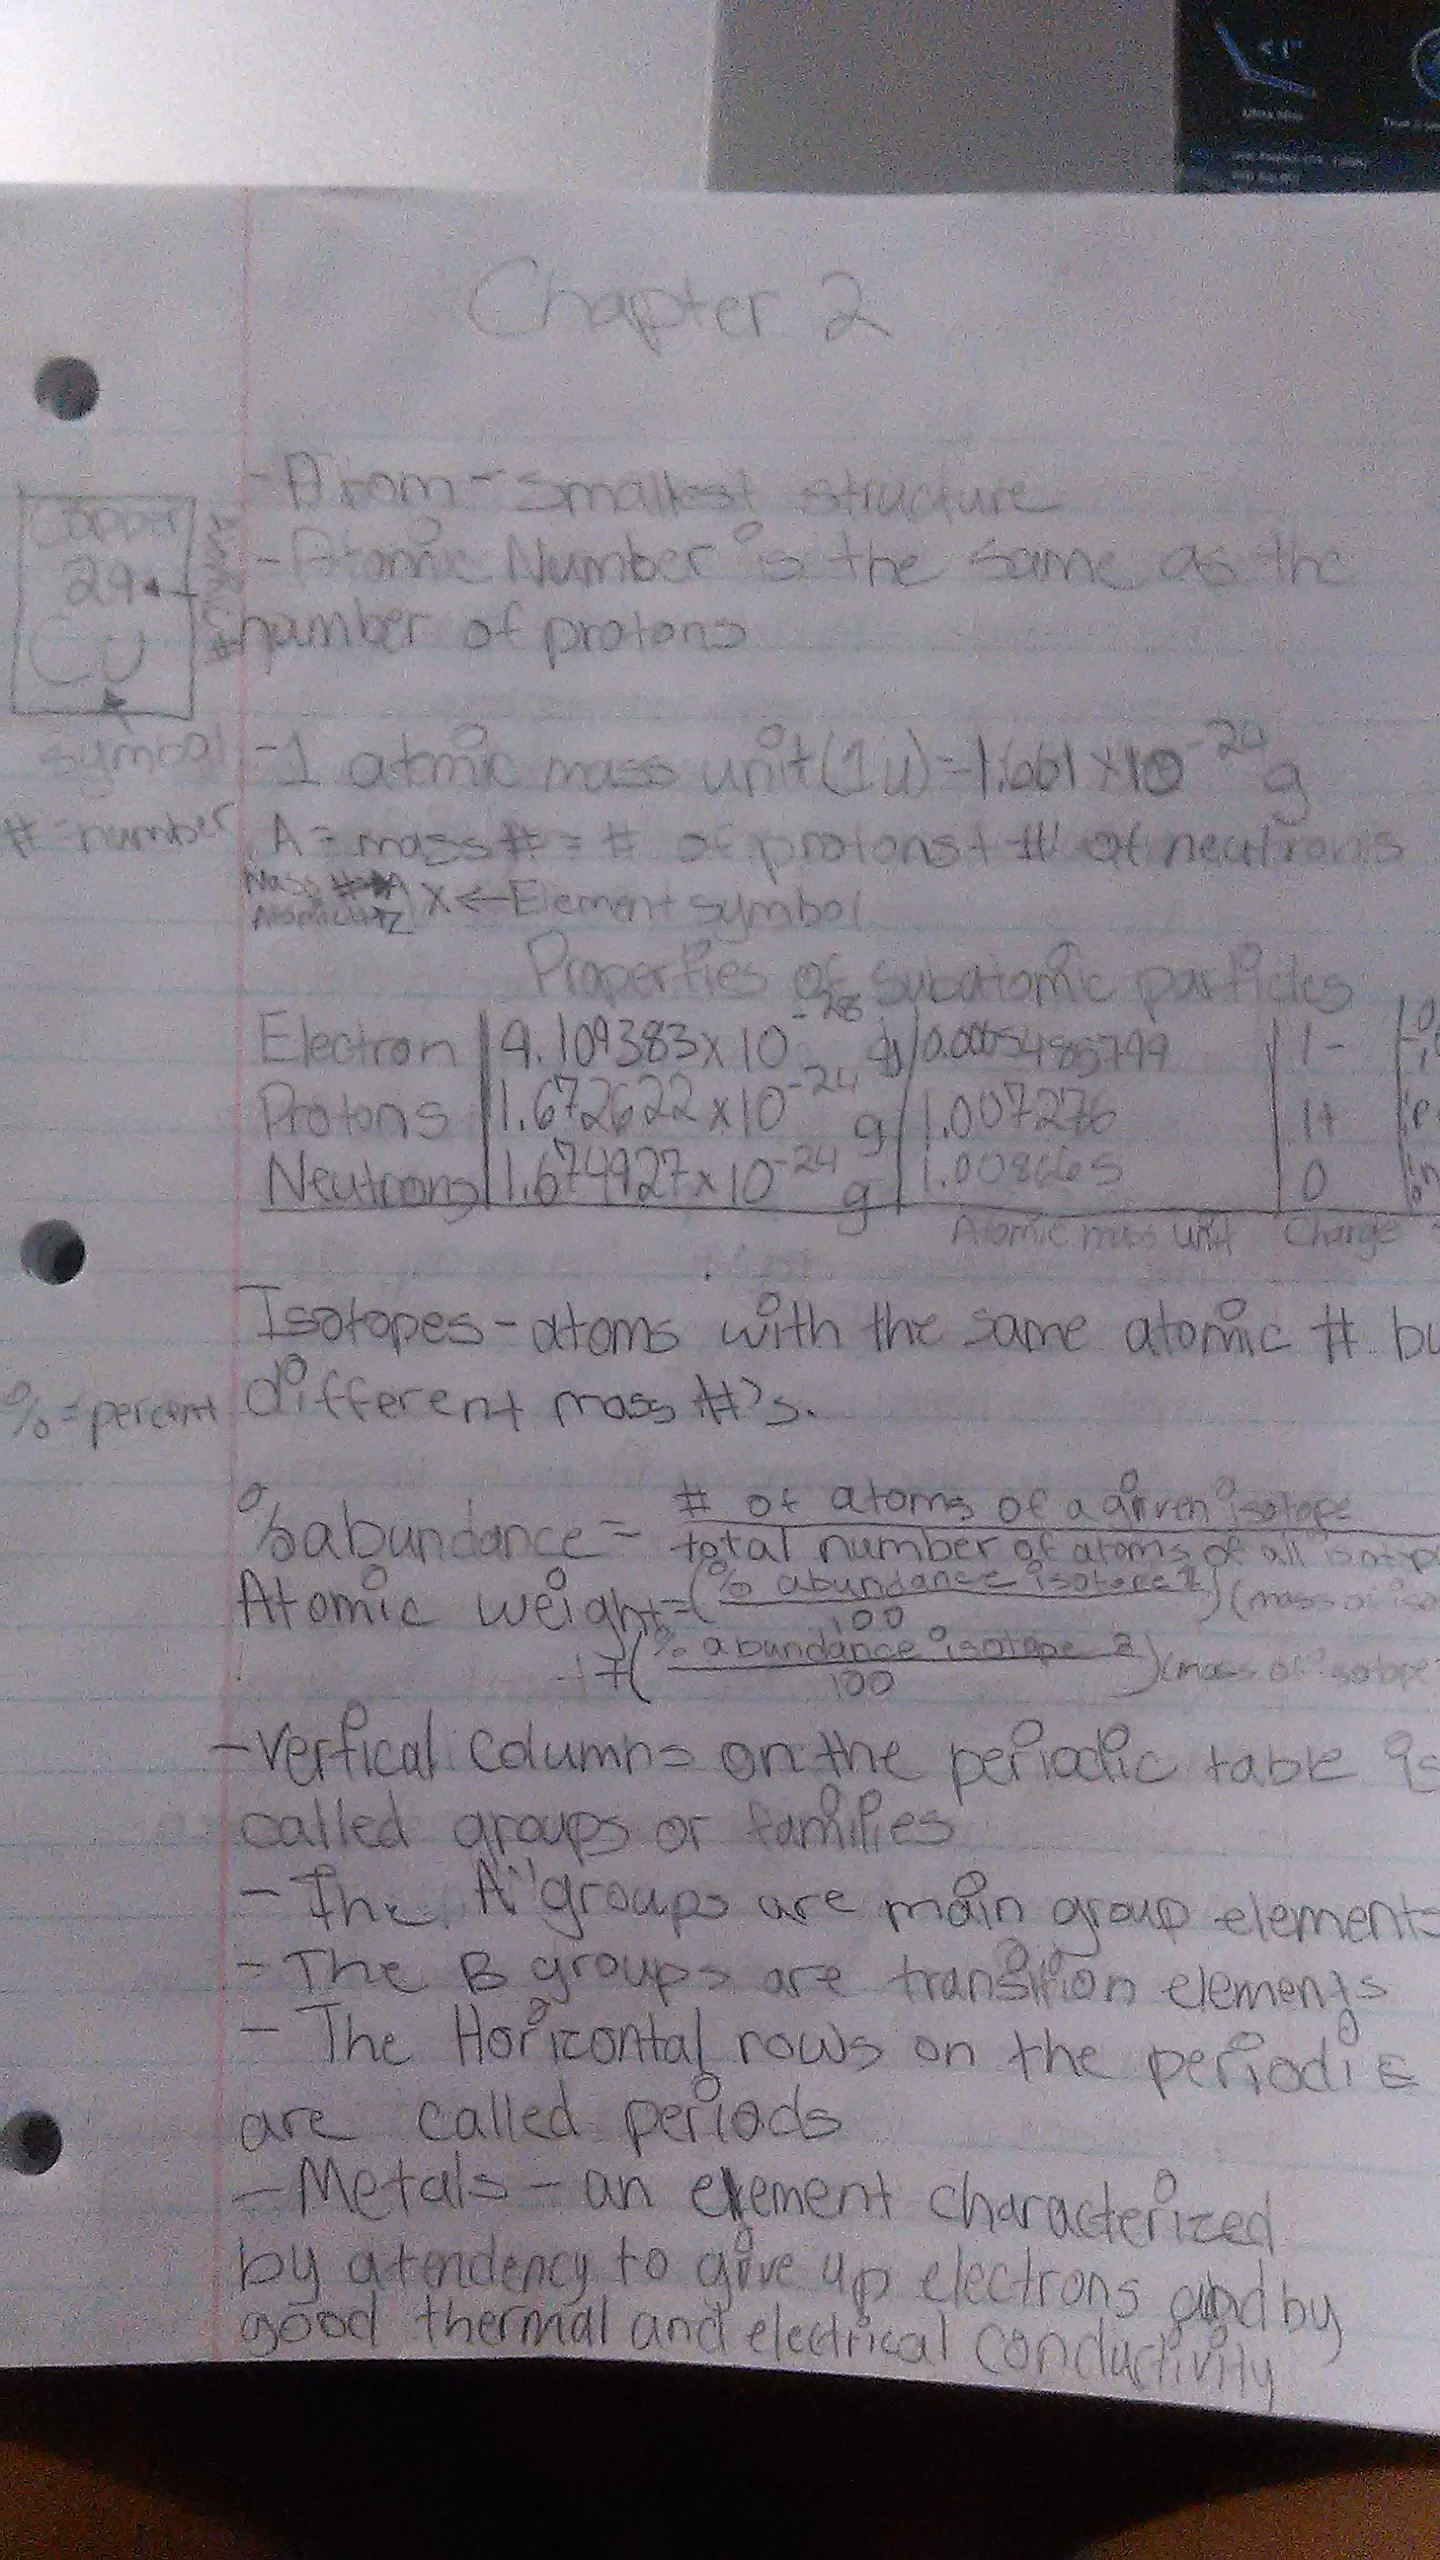 <1"
Chapter 2
- Atom - smallest structure
Copper
29
Cu
symbol
- Atomic Number is the same as the
number of protons
- 1 atomic mass unit (1u) = 1.661 x 10^-24 g
# = number
A = mass # = # of protons + # of neutrons
Mass # → A
Atomic # → Z
X ← Element symbol
Properties of subatomic particles
Electron | 9.109383 x 10^-28 g | 0.0005485799 | 1-
Protons | 1.672622 x 10^-24 g | 1.007276 | 1+
Neutrons | 1.674927 x 10^-24 g | 1.008665 | 0
Atomic mass unit Charge
Isotopes - atoms with the same atomic # bu
different mass #'s.
% = percent
% abundance = # of atoms of a given isotope
total number of atoms of all isotop
Atomic weight = (% abundance isotope 1 / 100) (mass of iso
+ (% abundance isotope 2 / 100) (mass of isotope
- Vertical columns on the periodic table is
called groups or families
- The "A" groups are main group elements
- The B groups are transition elements
- The Horizontal rows on the periodic
are called periods
- Metals - an element characterized
by a tendency to give up electrons and by
good thermal and electrical conductivity